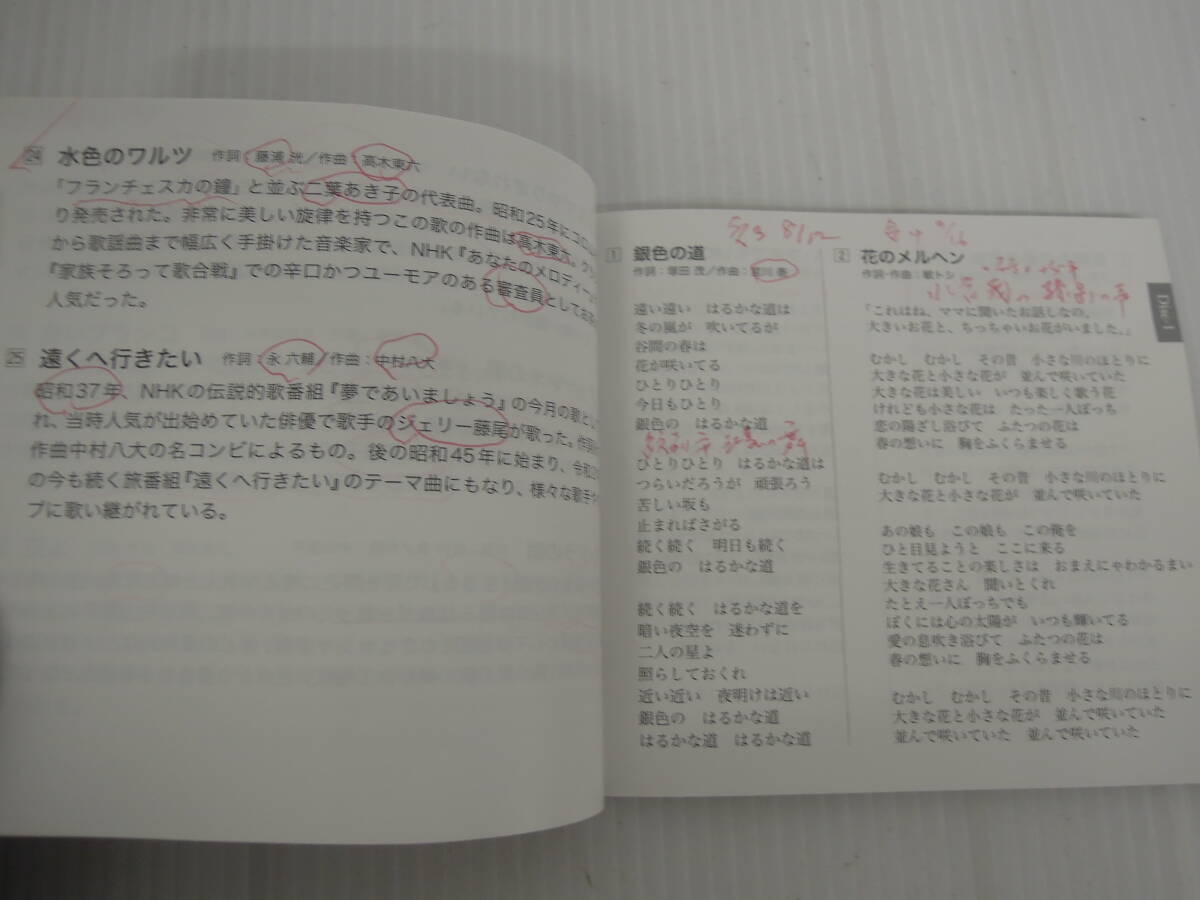 24 水色のワルツ 作詞:藤浦 洸/作曲:高木東六
「フランチェスカの鐘」と並ぶ二葉あき子の代表曲。昭和25年にコロ
り発売された。非常に美しい旋律を持つこの歌の作曲は高木東六。ク
から歌謡曲まで幅広く手掛けた音楽家で、NHK『あなたのメロディー
『家族そろって歌合戦』での辛口かつユーモアのある審査員としてお
人気だった。
25 遠くへ行きたい 作詞:永 六輔/作曲:中村八大
昭和37年、NHKの伝説的歌番組『夢であいましょう』の今月の歌とし
れ、当時人気が出始めていた俳優で歌手のジェリー藤尾が歌った。作
作曲中村八大の名コンビによるもの。後の昭和45年に始まり、令和
の今も続く旅番組『遠くへ行きたい』のテーマ曲にもなり、様々な歌手や
プに歌い継がれている。
1 銀色の道
作詞:塚田 茂/作曲:宮川 泰
遠い遠い はるかな道は
冬の嵐が 吹いてるが
谷間の春は
花が咲いてる
ひとりひとり
今日もひとり
銀色の はるかな道
ひとりひとり はるかな道は
つらいだろうが 頑張ろう
苦しい坂も
止まればさがる
続く続く 明日も続く
銀色の はるかな道
続く続く はるかな道を
暗い夜空を 迷わずに
二人の星よ
照らしておくれ
近い近い 夜明けは近い
銀色の はるかな道
はるかな道 はるかな道
2 花のメルヘン
作詞・作曲:敏トシ
「これはね、ママに聞いたお話しなの。
大きいお花と、ちっちゃいお花がいました。」
むかし むかし その昔 小さな川のほとりに
大きな花と小さな花が 並んで咲いていた
大きな花は美しい いつも楽しく歌う花
けれども小さな花は たった一人ぼっち
恋の陽ざし浴びて ふたつの花は
春の想いに 胸をふくらませる
むかし むかし その昔 小さな川のほとりに
大きな花と小さな花が 並んで咲いていた
あの娘も この娘も この俺を
ひと目見ようと ここに来る
生きてることの楽しさは おまえにゃわかるまい
大きな花さん 聞いとくれ
たとえ一人ぼっちでも
ぼくには心の太陽が いつも輝いてる
愛の息吹き浴びて ふたつの花は
春の想いに 胸をふくらませる
むかし むかし その昔 小さな川のほとりに
大きな花と小さな花が 並んで咲いていた
並んで咲いていた 並んで咲いていた
Disc-1